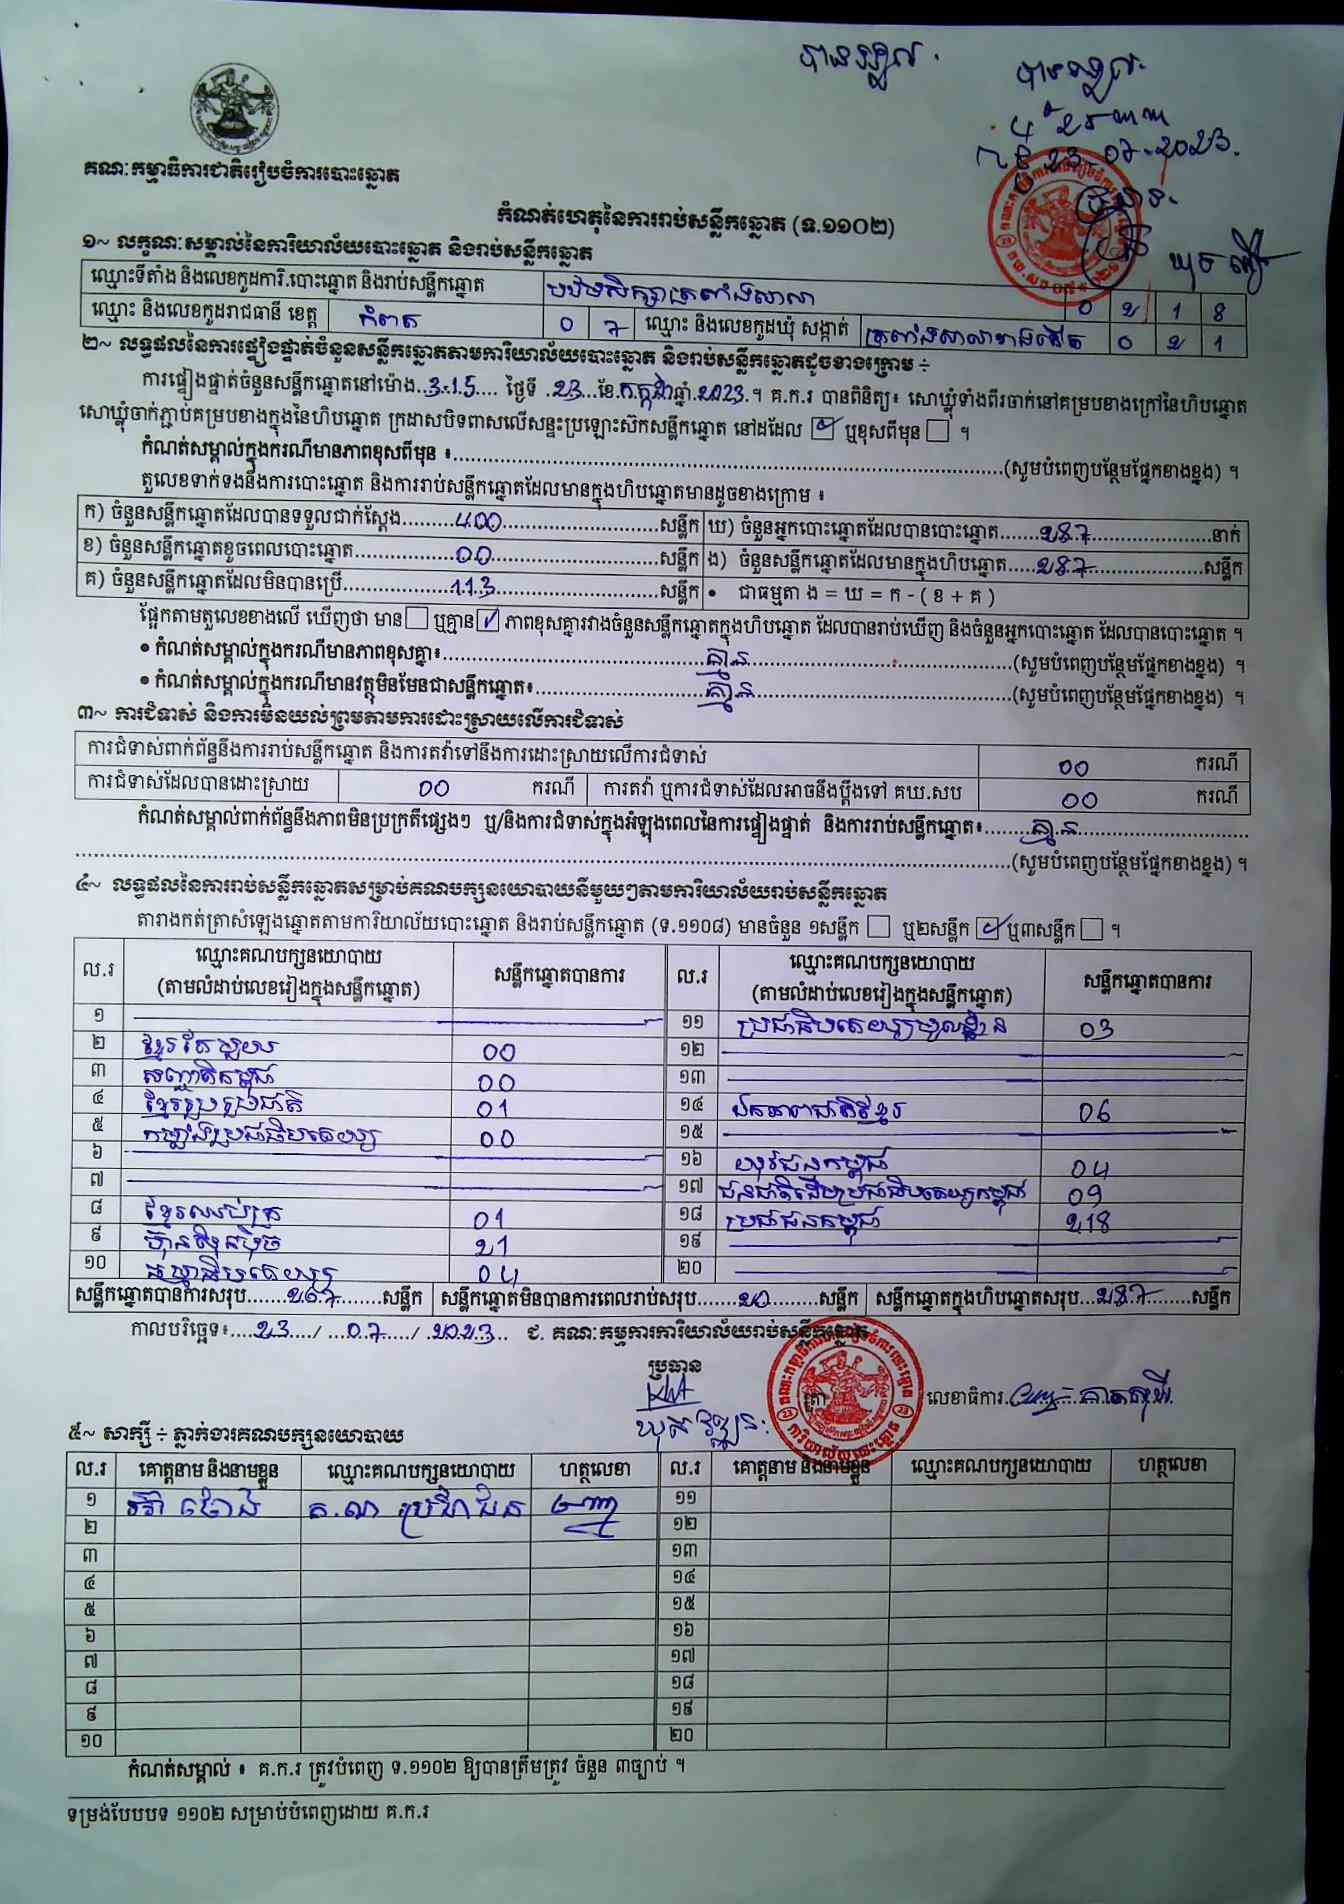 បានឃើញ
បានឃើញ
ថ្ងៃទី 23-07-2023
ប្រធាន
គណៈកម្មាធិការជាតិរៀបចំការបោះឆ្នោត
កំណត់ហេតុនៃការរាប់សន្លឹកឆ្នោត (ទ.១១០២)
១~ លក្ខណៈសម្គាល់នៃការិយាល័យបោះឆ្នោត និងរាប់សន្លឹកឆ្នោត
ឈ្មោះទីតាំង និងលេខកូដការិ.បោះឆ្នោត និងរាប់សន្លឹកឆ្នោត បឋមសិក្សាត្រពាំងសាលា 0 2 1 8
ឈ្មោះ និងលេខកូដរាជធានី ខេត្ត កំពត 0 7 ឈ្មោះ និងលេខកូដឃុំ សង្កាត់ ត្រពាំងសាលាខាងកើត 0 2 1
២~ លទ្ធផលនៃការផ្ទៀងផ្ទាត់ចំនួនសន្លឹកឆ្នោតតាមការិយាល័យបោះឆ្នោត និងរាប់សន្លឹកឆ្នោតដូចខាងក្រោម ÷
ការផ្ទៀងផ្ទាត់ចំនួនសន្លឹកឆ្នោតនៅម៉ោង..3:15.... ថ្ងៃទី .23...ខែ.កក្កដា.ឆ្នាំ.2023.។ គ.ក.រ បានពិនិត្យ៖ សោឃ្លុំទាំងពីរចាក់នៅគម្របខាងក្រៅនៃហិបឆ្នោត
សោឃ្លុំចាក់ភ្ជាប់គម្របខាងក្នុងនៃហិបឆ្នោត ក្រដាសបិទពាសលើសន្ទះប្រឡោះស៊កសន្លឹកឆ្នោត នៅដដែល ☑ ឬខុសពីមុន ☐ ។
កំណត់សម្គាល់ក្នុងករណីមានភាពខុសពីមុន ៖....................(សូមបំពេញបន្ថែមផ្នែកខាងខ្នង) ។
តួលេខទាក់ទងនឹងការបោះឆ្នោត និងការរាប់សន្លឹកឆ្នោតដែលមានក្នុងហិបឆ្នោតមានដូចខាងក្រោម ៖
ក) ចំនួនសន្លឹកឆ្នោតដែលបានទទួលជាក់ស្តែង.........400.........សន្លឹក ឃ) ចំនួនអ្នកបោះឆ្នោតដែលបានបោះឆ្នោត.......287.......នាក់
ខ) ចំនួនសន្លឹកឆ្នោតខូចពេលបោះឆ្នោត.........00.........សន្លឹក ង) ចំនួនសន្លឹកឆ្នោតដែលមានក្នុងហិបឆ្នោត.....287.......សន្លឹក
គ) ចំនួនសន្លឹកឆ្នោតដែលមិនបានប្រើ.........113.........សន្លឹក • ជាធម្មតា ង = ឃ = ក - ( ខ + គ )
ផ្អែកតាមតួលេខខាងលើ ឃើញថា មាន ☐ ឬគ្មាន ☑ ភាពខុសគ្នារវាងចំនួនសន្លឹកឆ្នោតក្នុងហិបឆ្នោត ដែលបានរាប់ឃើញ និងចំនួនអ្នកបោះឆ្នោត ដែលបានបោះឆ្នោត ។
• កំណត់សម្គាល់ក្នុងករណីមានភាពខុសគ្នា៖.........គ្មាន.........(សូមបំពេញបន្ថែមផ្នែកខាងខ្នង) ។
• កំណត់សម្គាល់ក្នុងករណីមានវត្ថុមិនមែនជាសន្លឹកឆ្នោត៖.........គ្មាន.........(សូមបំពេញបន្ថែមផ្នែកខាងខ្នង) ។
៣~ ការជំទាស់ និងការមិនយល់ព្រមតាមការដោះស្រាយលើការជំទាស់
ការជំទាស់ពាក់ព័ន្ធនឹងការរាប់សន្លឹកឆ្នោត និងការតវ៉ាទៅនឹងការដោះស្រាយលើការជំទាស់ 00 ករណី
ការជំទាស់ដែលបានដោះស្រាយ 00 ករណី ការតវ៉ា ឬការជំទាស់ដែលអាចនឹងប្តឹងទៅ គឃ.សប 00 ករណី
កំណត់សម្គាល់ពាក់ព័ន្ធនឹងភាពមិនប្រក្រតីផ្សេងៗ ឬ/និងការជំទាស់ក្នុងអំឡុងពេលនៃការផ្ទៀងផ្ទាត់ និងការរាប់សន្លឹកឆ្នោត៖.......គ្មាន.......
....................(សូមបំពេញបន្ថែមផ្នែកខាងខ្នង) ។
៤~ លទ្ធផលនៃការរាប់សន្លឹកឆ្នោតសម្រាប់គណបក្សនយោបាយនីមួយៗតាមការិយាល័យរាប់សន្លឹកឆ្នោត
តារាងកត់ត្រាសំឡេងឆ្នោតតាមការិយាល័យបោះឆ្នោត និងរាប់សន្លឹកឆ្នោត (ទ.១១០៨) មានចំនួន ១សន្លឹក ☐ ឬ២សន្លឹក ☑ ឬ៣សន្លឹក ☐ ។
ល.រ ឈ្មោះគណបក្សនយោបាយ (តាមលំដាប់លេខរៀងក្នុងសន្លឹកឆ្នោត) សន្លឹកឆ្នោតបានការ ល.រ ឈ្មោះគណបក្សនយោបាយ (តាមលំដាប់លេខរៀងក្នុងសន្លឹកឆ្នោត) សន្លឹកឆ្នោតបានការ
១ ១១ ប្រជាធិបតេយ្យមូលដ្ឋាន 03
២ ខ្មែរតែមួយ 00 ១២
៣ សញ្ជាតិកម្ពុជា 00 ១៣
៤ ខ្មែររួបរួមជាតិ 01 ១៤ ឯកភាពជាតិខ្មែរ 06
៥ កម្លាំងប្រជាធិបតេយ្យ 00 ១៥
៦ ១៦ យុវជនកម្ពុជា 04
៧ ១៧ ជនជាតិដើមប្រជាធិបតេយ្យកម្ពុជា 09
៨ ខ្មែរឈប់ក្រ 01 ១៨ ប្រជាជនកម្ពុជា 218
៩ ហ៊្វុនស៊ិនប៉ិច 21 ១៩
១០ ធម្មាធិបតេយ្យ 04 ២០
សន្លឹកឆ្នោតបានការសរុប.......267.......សន្លឹក សន្លឹកឆ្នោតមិនបានការពេលរាប់សរុប.......20.......សន្លឹក សន្លឹកឆ្នោតក្នុងហិបឆ្នោតសរុប...287.......សន្លឹក
កាលបរិច្ឆេទ៖....23..../ ...07..../ .2023... ជ. គណៈកម្មការការិយាល័យរាប់សន្លឹកឆ្នោត
ប្រធាន
ត្រា
លេខាធិការ
៥~ សាក្សី ÷ ភ្នាក់ងារគណបក្សនយោបាយ
ល.រ គោត្តនាម និងនាមខ្លួន ឈ្មោះគណបក្សនយោបាយ ហត្ថលេខា ល.រ គោត្តនាម និងនាមខ្លួន ឈ្មោះគណបក្សនយោបាយ ហត្ថលេខា
១ គ.ណ ប្រជាជន ១១
២ ១២
៣ ១៣
៤ ១៤
៥ ១៥
៦ ១៦
៧ ១៧
៨ ១៨
៩ ១៩
១០ ២០
កំណត់សម្គាល់ ៖ គ.ក.រ ត្រូវបំពេញ ទ.១១០២ ឱ្យបានត្រឹមត្រូវ ចំនួន ៣ច្បាប់ ។
ទម្រង់បែបបទ ១១០២ សម្រាប់បំពេញដោយ គ.ក.រ